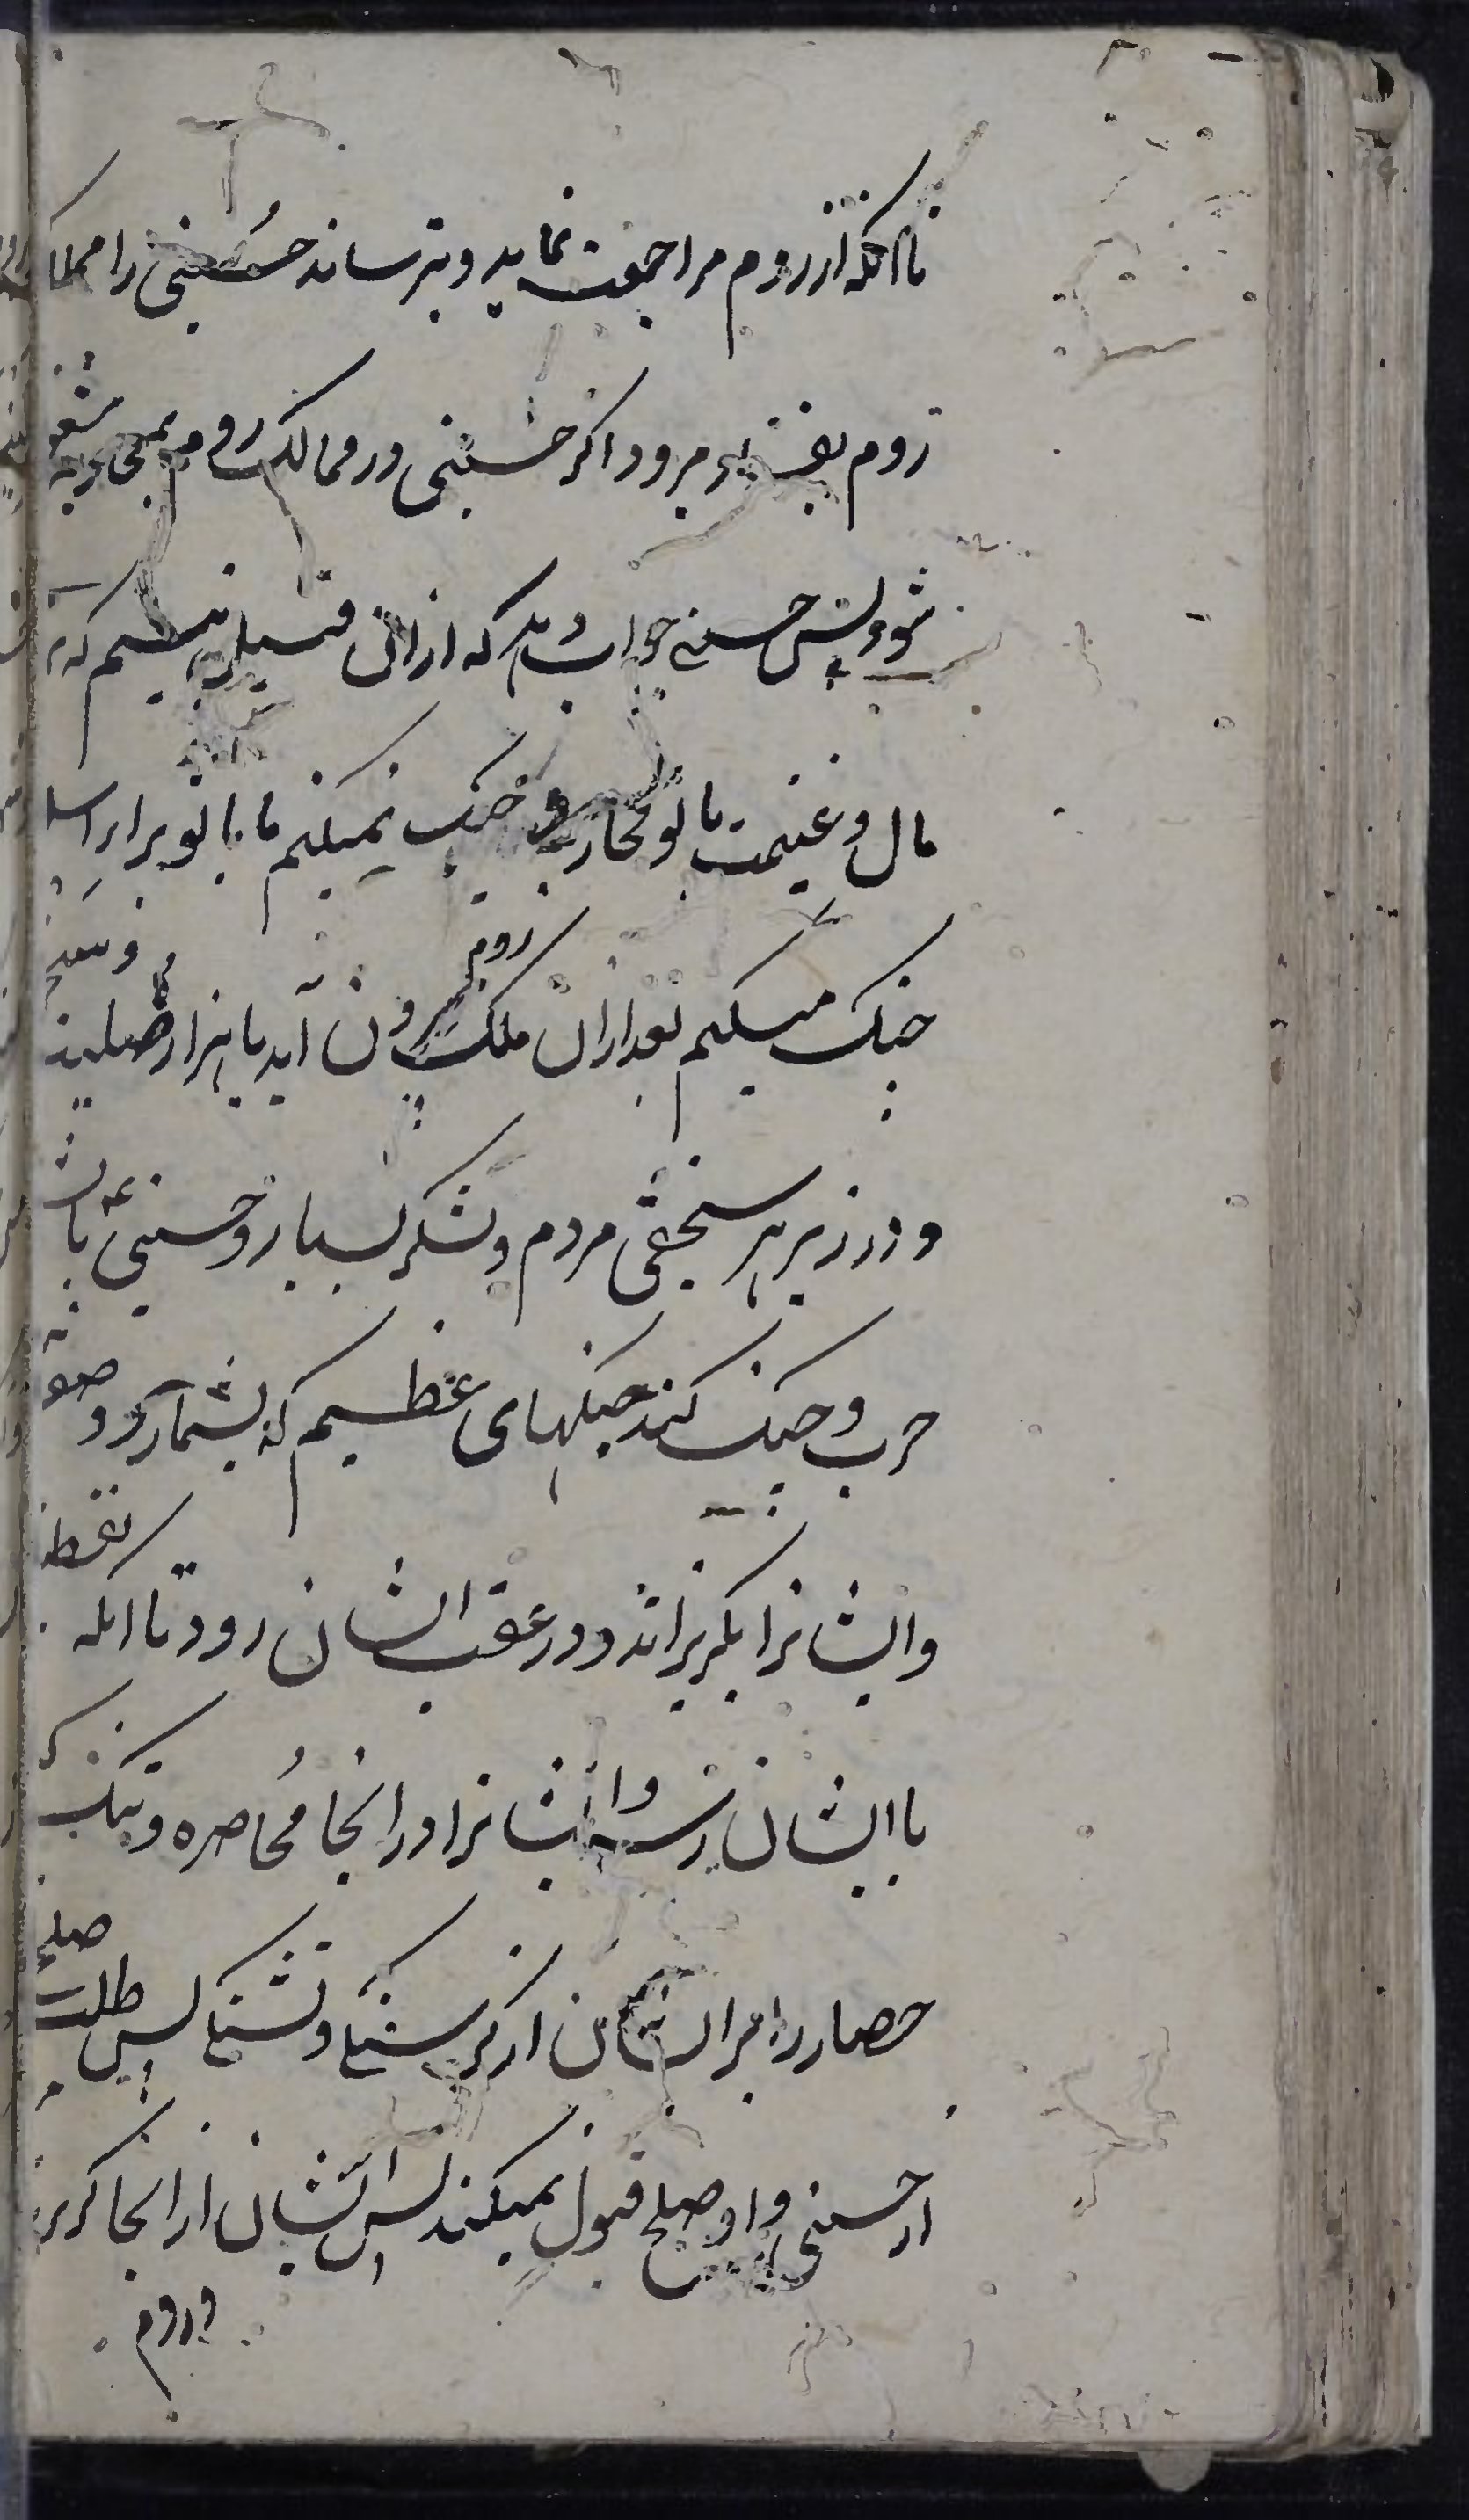 تا آنکه از روم مراجعت نماید و بترساند حسینی را مملکت
روم بغنیمت مرود اگر حسینی در ممالک روم بمحاربه مشغول
شود پس حسینی جواب دهد که از آن قبیل نیستم که بر
مال و غنیمت با تو محاربه و جنک نمیکنم ما با تو برای اسلام
جنک میکنم بعد از آن ملک روم بیرون آید با هزار صلیب
و در زیر هر سنجقی مردم و لشکر بسیار و حسینی با
حرب و جنک کند جنکهای عظیم که بشمار
و ایشانرا بگریزاند و در عقب ایشان رود تا آنکه
با ایشان رسد و ایشانرا در آنجا محاصره و تنک کند
حصار را بر ایشان از گرسنگی و تشنگی پس طلب صلح
از حسینی و او صلح قبول نمیکند پس ایشان از آنجا گریزند
و روم